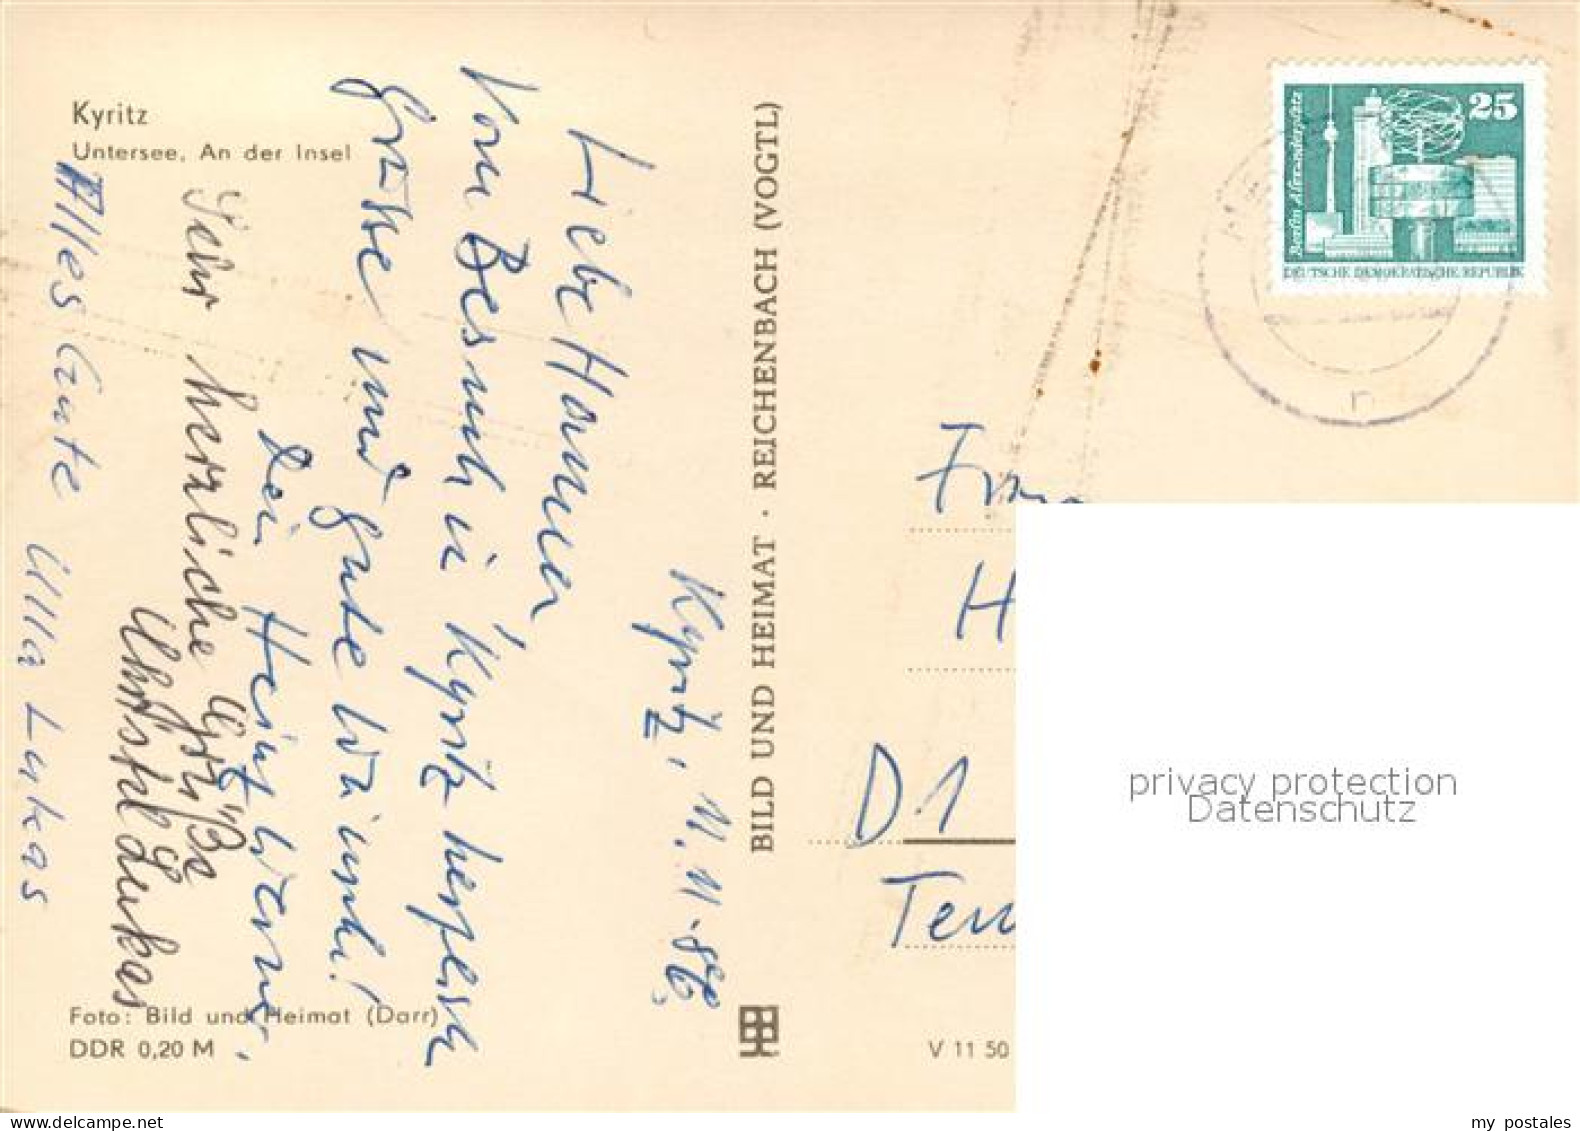 Kyritz
Untersee, An der Insel
Kyritz, 11.11.86
Liebe Hanna
Vom Besuch in Kyritz herzliche
Grüsse und gute Wünsche!
Dein Heinz Werner.
Sehr herzliche Grüße
Lukas
Alles Gute Ulla Lukas
Foto: Bild und Heimat (Darr)
DDR 0,20 M
BILD UND HEIMAT · REICHENBACH (VOGTL)
V 11 50
25
Berlin Alexanderplatz
DEUTSCHE DEMOKRATISCHE REPUBLIK
H
D1
privacy protection
Datenschutz
www.delcampe.net
my postales